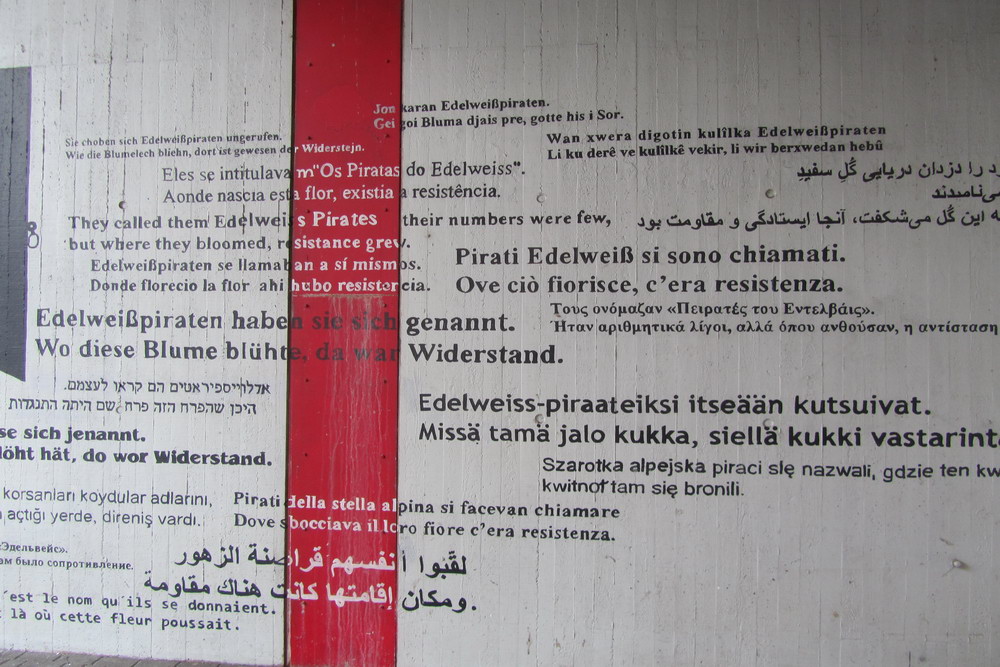 Jon karan Edelweißpiraten.
Gei goi Bluma djais pre, gotte his i Sor.
Sie choben sich Edelweißpiraten ungerufen.
Wie die Blumelech bliehn, dort ist gewesen der Widerstejn.
Wan xwera digotin kulîlka Edelweißpiraten
Li ku derê ve kulîlkê vekir, li wir berxwedan hebû
Eles se intitulavam "Os Piratas do Edelweiss".
Aonde nascia esta flor, existia a resistência.
د را دزدان دریایی گُلِ سفید
می‌نامیدند
که این گُل می‌شکفت، آنجا ایستادگی و مقاومت بود
They called them Edelweiss Pirates their numbers were few,
but where they bloomed, resistance grew.
Pirati Edelweiß si sono chiamati.
Ove ciò fiorisce, c'era resistenza.
Edelweißpiraten se llamaban a sí mismos.
Donde florecio la flor ahi hubo resistencia.
Τους ονόμαζαν «Πειρατές του Εντελβάις».
Ήταν αριθμητικά λίγοι, αλλά όπου ανθούσαν, η αντίσταση
Edelweißpiraten haben sie sich genannt.
Wo diese Blume blühte, da war Widerstand.
אדלווייספיראטים הם קראו לעצמם.
היכן שהפרח הזה פרח שם היתה התנגדות
Edelweiss-piraateiksi itseään kutsuivat.
Missä tamä jalo kukka, siellä kukki vastarinta
se sich jenannt.
löht hät, do wor Widerstand.
Szarotka alpejska piraci slę nazwali, gdzie ten kw
kwitnoł tam się bronili.
korsanları koydular adlarını,
açtığı yerde, direniş vardı.
Pirati della stella alpina si facevan chiamare
Dove sbocciava il loro fiore c'era resistenza.
Эдельвейс».
ам было сопротивление.
لقَبوا أنفسهم قراصنة الزهور
ومكان إقامتها كانت هناك مقاومة.
'est le nom qu'ils se donnaient.
là où cette fleur poussait.